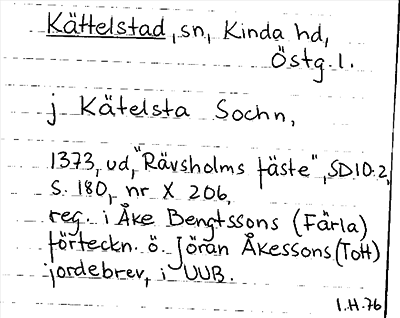 Kättelstad, sn, Kinda hd,
Östg. l.
j Kätelsta Sochn,
1373, ud, "Rävsholms fäste", SD 10:2,
s. 180, nr X 206,
reg. i Åke Bengtssons (Färla)
förteckn. ö. Jöran Åkessons (Tott)
jordebrev, i UUB.
I.H. 76